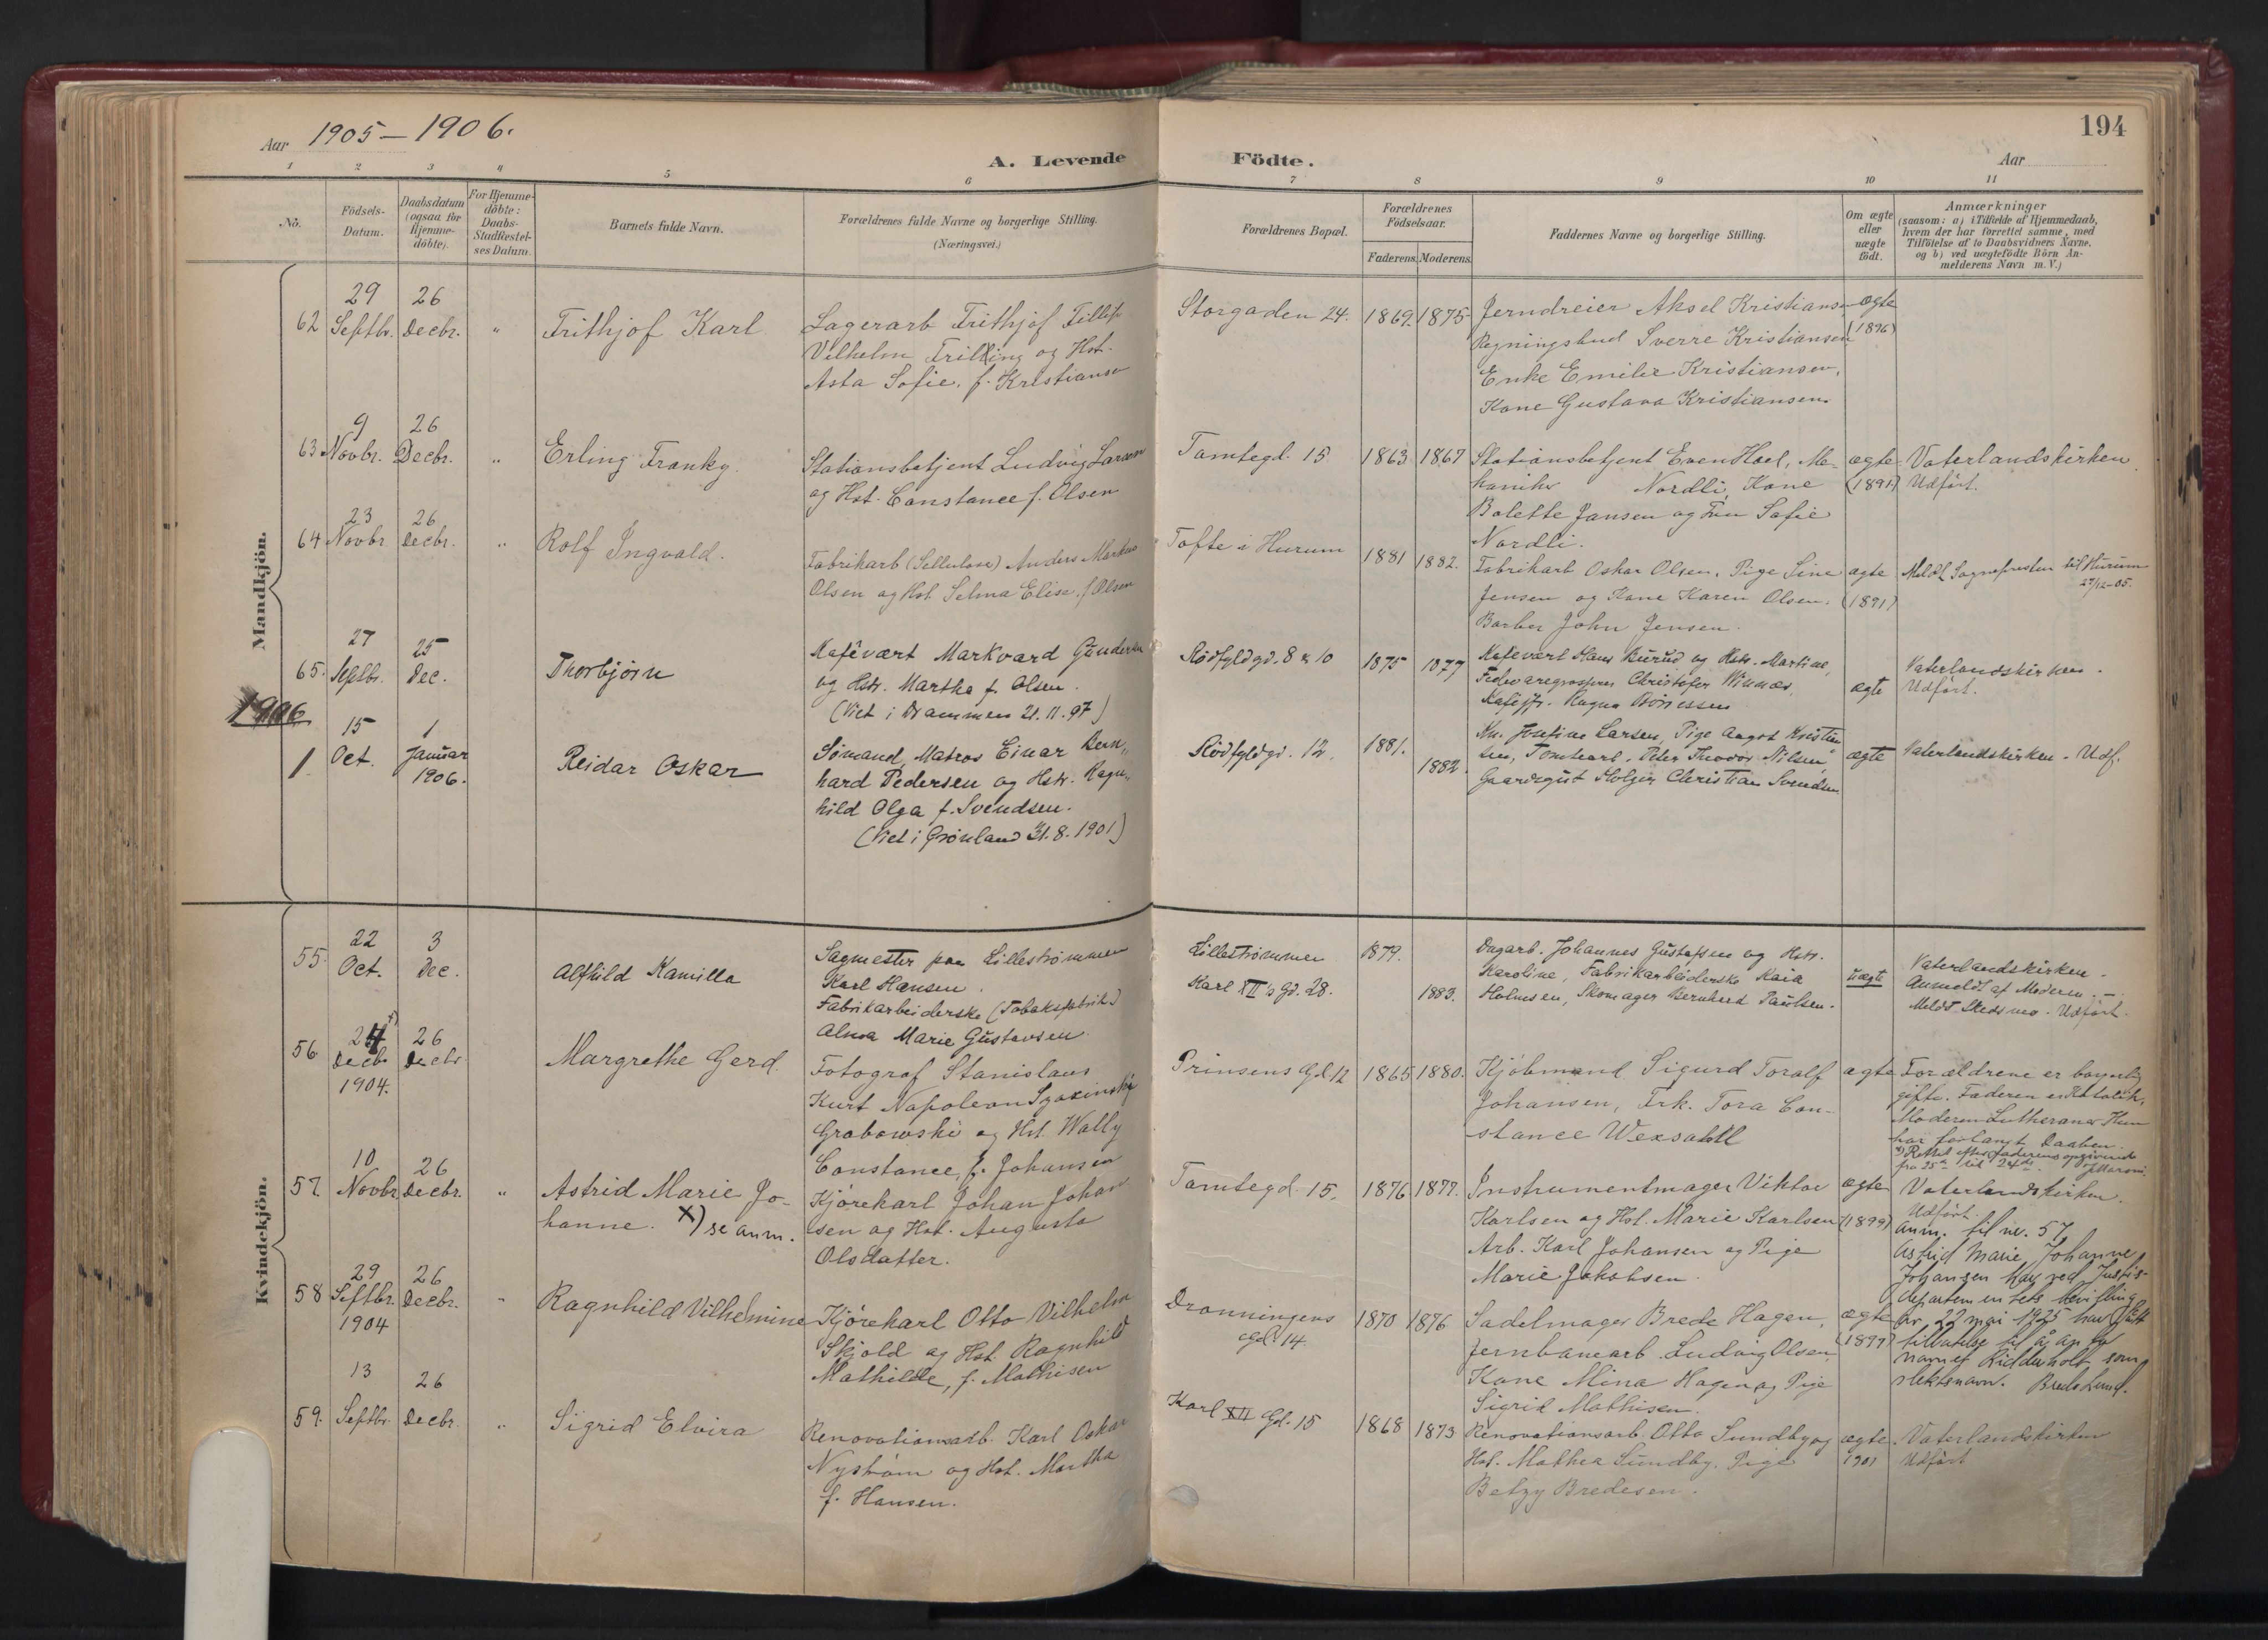 Aar 1905–1906.
A. Levende Födte.
Aar
194
1 2 3 4 5 6 7 8 9 10 11
No.
Födsels-
Datum.
Daabsdatum
(ogsaa for
Hjemme-
döbte).
For Hjemme-
döbte:
Daabs-
Stadfæstel-
ses Datum.
Barnets fulde Navn.
Forældrenes fulde Navne og borgerlige Stilling.
(Næringsvei.)
Forældrenes Bopæl.
Forældrenes
Födselsaar.
Faderens. Moderens.
Faddernes Navne og borgerlige Stilling.
Om ægte
eller
uægte
födt.
Anmærkninger
(saasom: a) i Tilfælde af Hjemmedaab,
hvem der har forrettet samme, med
Tilföielse af to Daabsvidners Navne,
og b) ved uægtefödte Börn An-
melderens Navn m. V.)
Mandkjön.
62
29
Septbr.
26
Decbr.
"
Frithjof Karl
Lagerarb Frithjof
Vilhelm Frilling og Hst.
Asta Sofie, f. Kristiansen
Storgaden 24.
1869. 1875
Jerndreier Aksel Kristiansen
Regningsbud Sverre Kristiansen
Enke Emilie Kristiansen,
Kone Gustava Kristiansen.
ægte
(1896)
63
9
Novbr.
26
Decbr.
"
Erling Franky.
Stationsbetjent Ludvig Larsen
og Hst. Constance f. Olsen
Tomtegd. 15
1863 1867
Stationsbetjent Even Hoel, Me-
kaniker Nordli, Kone
Bolette Jansen og Fru Sofie
Nordli.
ægte
(1891)
Vaterlandskirken
Udført.
64
23
Novbr
26
Decbr.
"
Rolf Ingvald.
Fabrikarb (Cellulose) Anders Markus
Olsen og Hst. Selma Elise f. Olsen
Tofte i Hurum
1881 1882.
Fabrikarb Oskar Olsen, Pige Sine
Jensen og Kone Karen Olsen.
Barber John Jensen.
ægte
(1891)
Meldt Sognepresten til Hurum
27/12-05.
65.
27
Septbr.
25
Dec.
Thorbjørn
Kafévært Markvard Gundersen
og Hstr. Martha f. Olsen.
(Viet i Drammen 21.11.97)
Rødfyldgd. 8 & 10
1875 1877
Kafevært Hans Burud og Hstr. Martine,
Fedevaregrosserer Christofer Winnæs,
Kafejfr. Ragna
ægte
Vaterlandskirken.
Udført.
1906
1
15
Oct.
1
Januar
1906.
Reidar Oskar
Sömand, Matros Einar Bern-
hard Pedersen og Hstr. Ragn-
hild Olga f. Svendsen.
(Viet i Grönland 31.8.1901)
Rødfyldgd. 12.
1881.
1882.
Kn. Josefine Larsen, Pige Aagot Kristian
sen, Tomtearb. Peter Theodor Nilsen,
Gaardsgut Holger Christian Svendsen
ægte
Vaterlandskirken. Udf.
Kvindekjön.
55.
22
Oct.
3
Dec.
Alfhild Kamilla
Sagmester paa Lillestrømmen
Karl Hansen.
Fabrikarbeiderske (Tobaksfabrik)
Alma Marie Gustavsen.
Lillestrømmen
Karl XII's Gd. 28.
1879.
1883.
Dagarb. Johannes Gustafsen og Hstr.
Karoline, Fabrikarbeiderske Kaia
Holmsen, Skomager Bernhard Paulsen.
uægte
Vaterlandskirken.
Anmeldt af Moderen.
Meldt Skedsmo. Udført.
56
24
Decb.
1904.
26
Decbr
Margrethe Gerd.
Fotograf Stanislaus
Kurt Napoleon
Grabowski og Hst. Wally
Constance, f. Johansen
Prinsens Gd. 12
1865 1880.
Kjöbmand Sigurd Toralf
Johansen, Frk. Tora Con-
stance Wexsahl
ægte
Forældrene er borgerlig
gifte. Faderen er Katolik,
Moderen Lutheraner. Hun
har forlangt Daaben.
x) Rettet efter Faderens opgivende
fra 25de til 24de.
57.
10
Novbr
26
Decbr.
"
Astrid Marie Jo-
hanne. x) se anm.
Kjørekarl Johan Johan
sen og Hst. Augusta
Olsdatter.
Tomtegd. 15.
1876 1877.
Instrumentmager Viktor
Karlsen og Hst. Marie Karlsen
Arb. Karl Johansen og Pige
Marie Jakobsen.
ægte
(1899)
Vaterlandskirken.
Udført.
Anm. til nr. 57
Astrid Marie Johanne
Johansen har ved Justis-
departementets bevilling
av 22 mai 1925 har fått
tillatelse til å anta
navnet Ridderholt som
slektsnavn.
58
29
Septbr.
1904
26
Decbr.
"
Ragnhild Vilhelmine
Kjørekarl Otto Vilhelm
Skjold og Hst. Ragnhild
Mathilde, f. Mathisen
Dronningens
Gd. 14.
1870 1876
Sadelmager Brede Hagen,
Jernbanearb. Ludvig Olsen,
Kone Mina Hagen og Pige
Sigrid Mathisen.
ægte
59.
13
Septbr.
26
Decbr.
"
Sigrid Elvira
Renovationsarb. Karl Oskar
Nyström og Hst. Martha
f. Hansen.
Karl XII Gd. 15
1868 1873
Renovationsarb. Otto Sundby og
Hst. Mathea Sundby. Pige
Betzy Bredesen.
ægte
1901
Vaterlandskirken
Udført